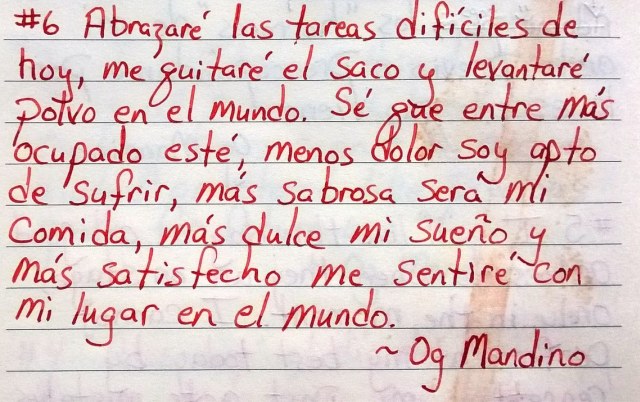 #6 Abrazaré las tareas difíciles de
hoy, me quitaré el saco y levantaré
polvo en el mundo. Sé que entre más
ocupado esté, menos dolor soy apto
de sufrir, más sabrosa será mi
comida, más dulce mi sueño y
más satisfecho me sentiré con
mi lugar en el mundo.
~ Og Mandino